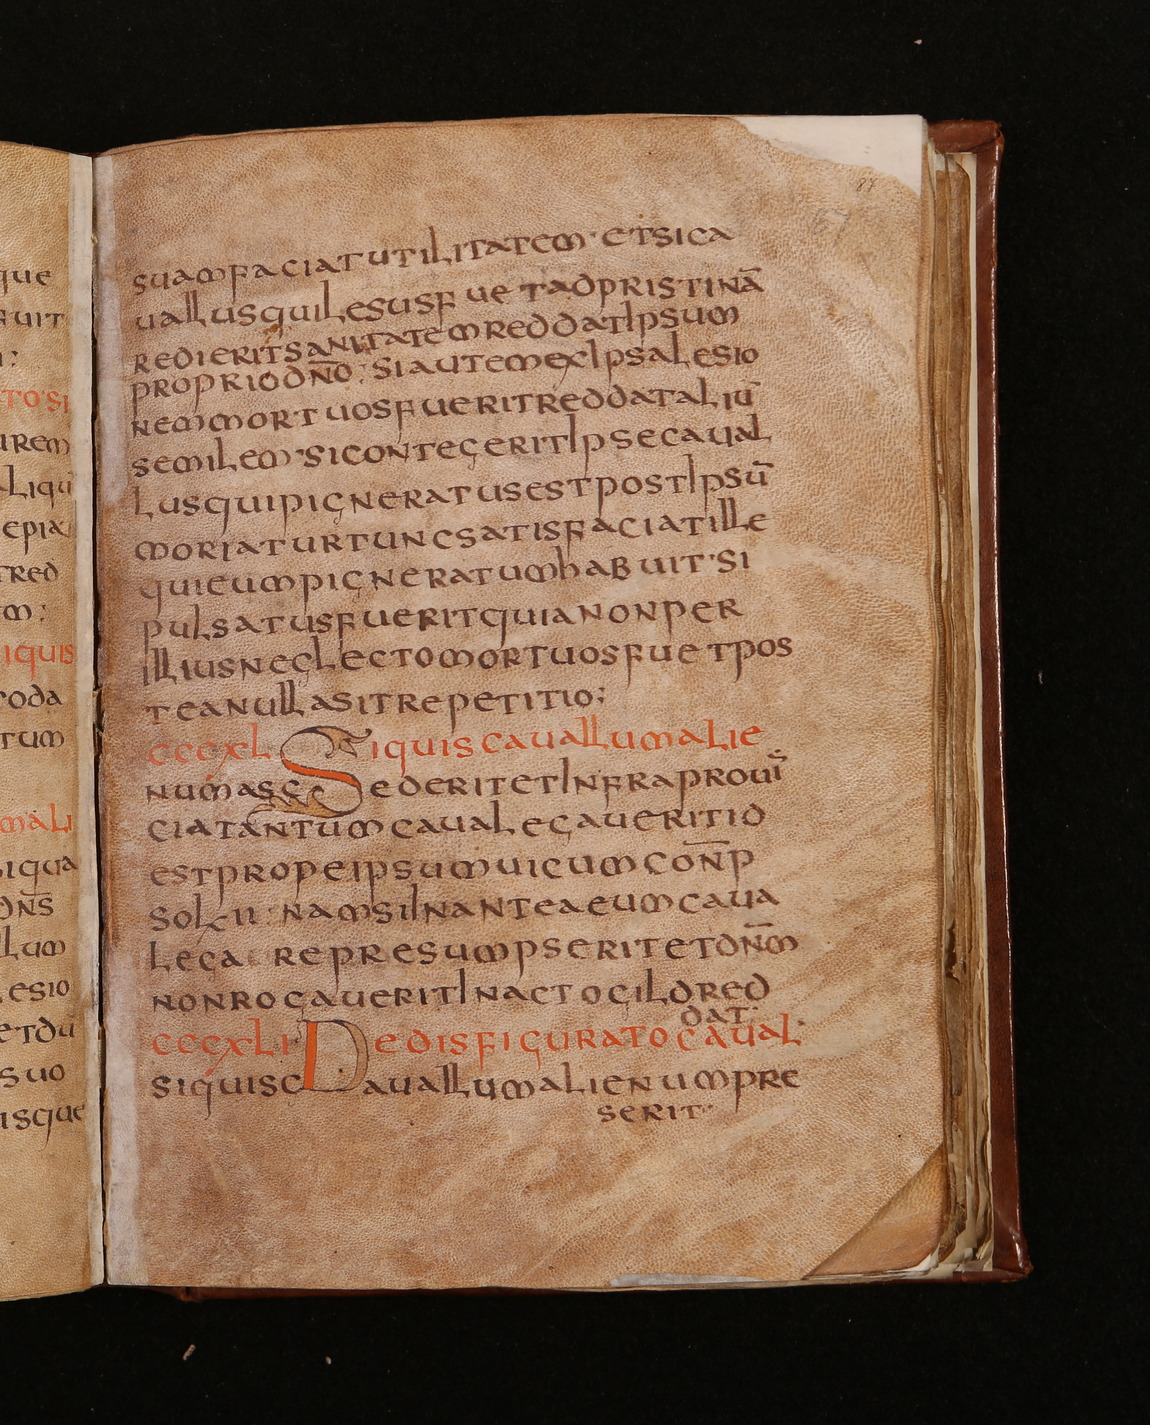 que
fuit
n:
to si
urem
aliqū
epia
tred
m:
iquis
roda
tum
mali
siqua
dn̄s
llum
lesio
etdu
suo
isque
87
suam faciat utilitatem · et sica
uallus qui lesus fuet ad pristinā
redierit sanitatem reddat ipsum
proprio dn̄o : si autem ex ipsa lesio
nem mortuos fuerit reddat aliū
semilem · si contegerit ipse caual
lus qui pigneratus est post ipsū
moriatur tunc satisfaciat ille
qui eum pigneratum habuit · si
pulsatus fuerit quia non per
illius neglecto mortuos fuet pos
tea nulla sit repetitio;
cccxl Si quis cauallum alie
num asce ederit et infra prouī
cia tantum caualegauerit id
est prope ipsum uicum con̄p
sol · ii · nam si inantea eum caua
lega re presumpserit et dn̄m
non rogauerit in actogild red
dat ·
cccxli De disfigurato caual ·
si quis cauallum alienum pre
serit ·